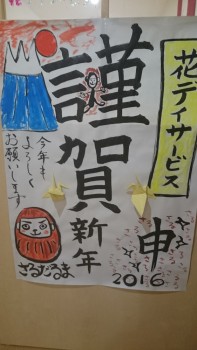 花デイサービス
謹賀新年
申
2016
今年も
よろしく
お願いします
さるだるま